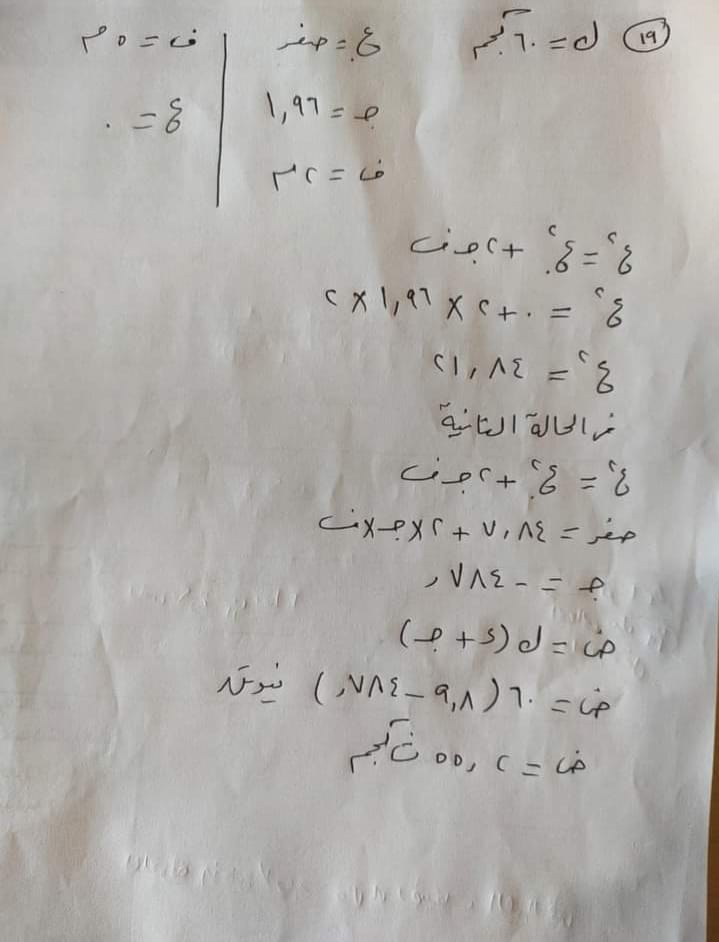 (١٩) ك = ٦٠ كجم ع. = صفر ف = ٥ م
جـ = ١,٩٦ ع = ٠
ف = ٢ م
ع² = ع.² + ٢ جـ ف
ع² = ٠ + ٢ × ١,٩٦ × ٢
ع² = ٢١,٨٤
في الحالة الثانية
ع² = ع.² + ٢ جـ ف
صفر = ٧,٨٤ + ٢ × جـ × ف
جـ = - ,٧٨٤
ض = ك (د + جـ)
ض = ٦٠ (٩,٨ - ,٧٨٤) نيوتن
ض = ٥٥,٢ ث كجم